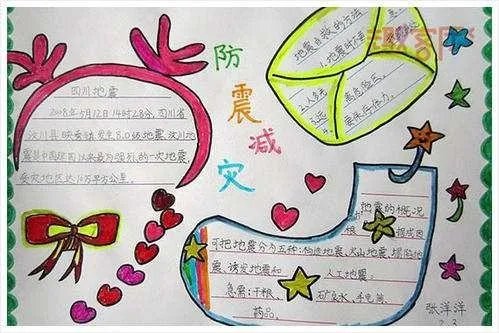 防
震
减
灾
四川地震
5月12日14时28分,四川省
汶川县映秀镇发生8.0级地震,汶川地
震是中国
一次地震,
受灾地区达10万平方公里。
地震自救的方法
1.地震时不要
2.人多先
离危险
3.远
要保存体力。
地震的概况
可把地震分为五种:构造地震、火山地震、塌陷地
震、诱发地震和
人工地震。
急需:干粮、
矿泉水、手电筒
药品。
张洋洋